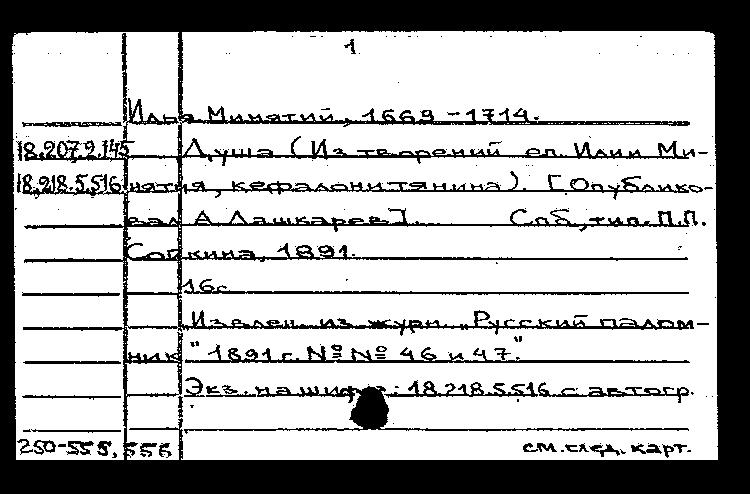 1
Илья Минятий, 1669-1714.
18.207.2.145 Душа (Из творений еп. Илии Ми-
18.218.5.516 нятия, кефалонитянина). [Опублико-
вал А Лашкарев]. Спб, тип. П.П.
Сойкина, 1891.
16с
Извлеч. из журн. "Русский палом-
ник" 1891 г. №№ 46 и 47."
Экз. на шифр: 18.218.5.516 с автогр.
250-555, 556 см. след. карт.